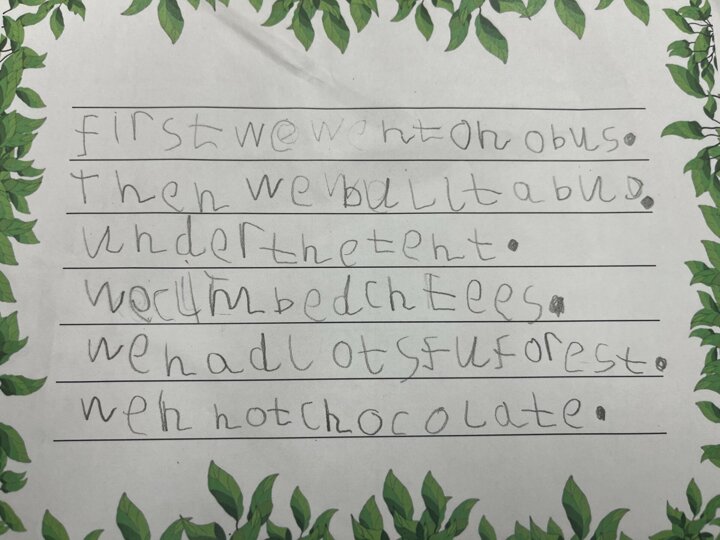 first we went on a bus.
Then we built a bus.
under the tent.
we climbed ch tees.
we had lots fu forest.
we h hot chocolate.